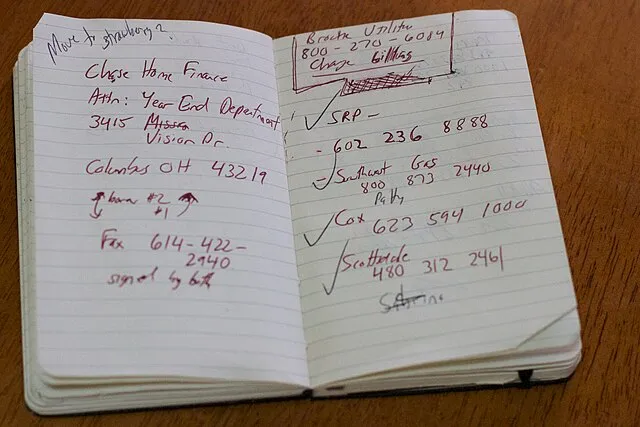 Move to strawberry?
Chase Home Finance
Attn: Year End Department
3415
Vision Dr.
Columbus OH 43219
#2
#1
Fax 614-422-
2940
signed by both
Utility
800-270-6084
Change billing
SRP -
- 602 236 8888
- Southwest Gas
800 873 2440
Patty
Cox 623 594 1000
Scottsdale
480 312 2461